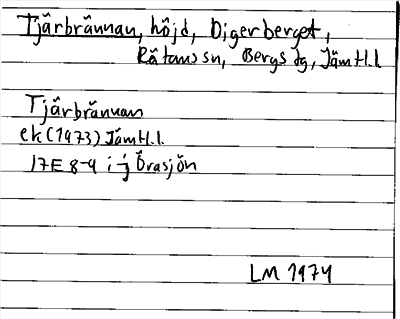 Tjärbrännan, höjd, Digerberget,
Rätans sn, Bergs tg, Jämtl.l
Tjärbrännan
ek (1973) Jämtl.l.
17E 8-9 i-j Örasjön
LM 1974